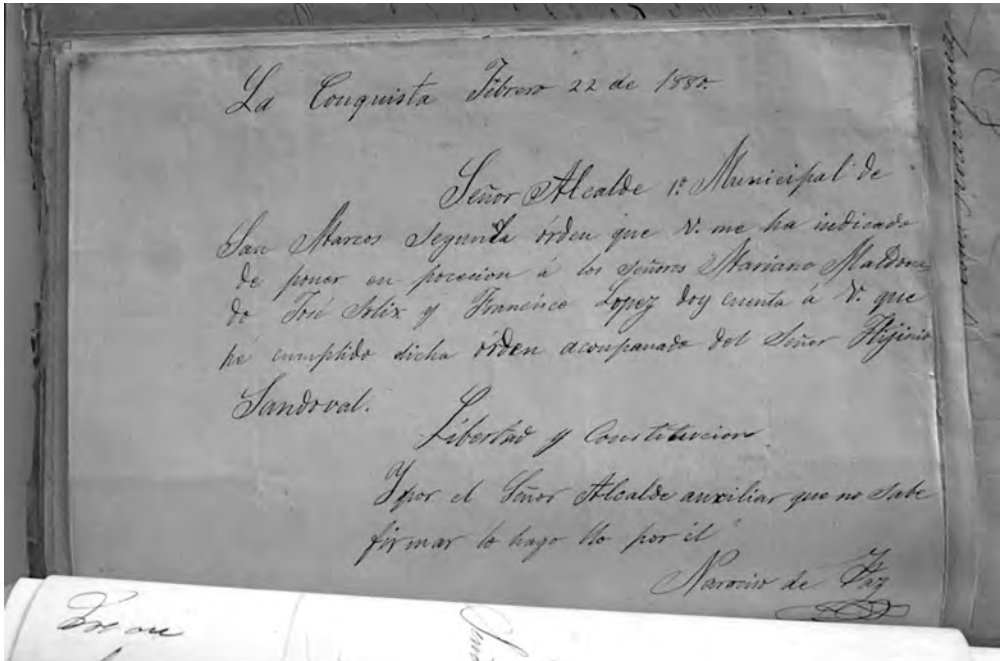 La Conquista Febrero 22 de 1880.
Señor Alcalde 1º Municipal de
San Marcos Segun la órden que V. me ha indicado
de poner en pocecion á los Señores Mariano Maldona-
do José Solix y Francisco Lopez doy cuenta á V. que
he cumplido dicha órden acompanado del Señor Hijinio
Sandoval.
Libertad y Constitucion
Y por el Señor Alcalde auxiliar que no sabe
firmar lo hago Yo por él
de Paz